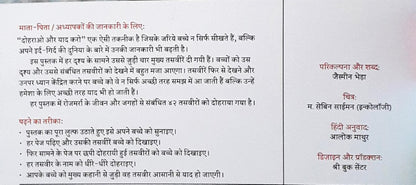 माता-पिता / अध्यापकों की जानकारी के लिए:
"दोहराओ और याद करो" एक ऐसी तकनीक है जिसके जरिये बच्चे न सिर्फ सीखते हैं, बल्कि
अपने इर्द-गिर्द की दुनिया के बारे में उनकी जानकारी भी बढ़ती है।
इस पुस्तक में हर दृश्य के सामने उससे जुड़ी चार मुख्य तसवीरें दी गयी हैं। बच्चों को उस
दृश्य और उससे संबंधित तसवीरों को देखने में बहुत मजा आएगा। तसवीरें फिर से देखने और
उनपर ध्यान केंद्रित करने पर बच्चे को वे न सिर्फ अच्छी तरह समझ में आ जाती हैं बल्कि उन्हें
हमेशा के लिए अच्छी तरह याद भी हो जाती हैं।
हर पुस्तक में रोजमर्रा के जीवन और जगहों से संबंधित ४२ तसवीरों को दोहराया गया है।
पढ़ने का तरीका:
• पुस्तक का पूरा लुत्फ उठाते हुए इसे अपने बच्चे को सुनाइए।
• हर पेज पढ़िए और उसकी तसवीरें बच्चे को दिखाइए।
• फिर सामने के पेज पर छपी दोहरायी हुई तसवीरों को बच्चे को दिखाइए।
• हर तसवीर के नाम को धीरे-धीरे दोहराइए।
• आपके बच्चे को मुख्य कहानी से जुड़ी वह तसवीर आसानी से याद हो जाएगी।
परिकल्पना और शब्द:
जैस्मीन भेड़ा
चित्र:
म. सेबिन साईमन (इन्कोलॉजी)
हिंदी अनुवाद:
आलोक माथुर
डिज़ाइन और प्रॉडक्शन:
श्री बुक सेंटर